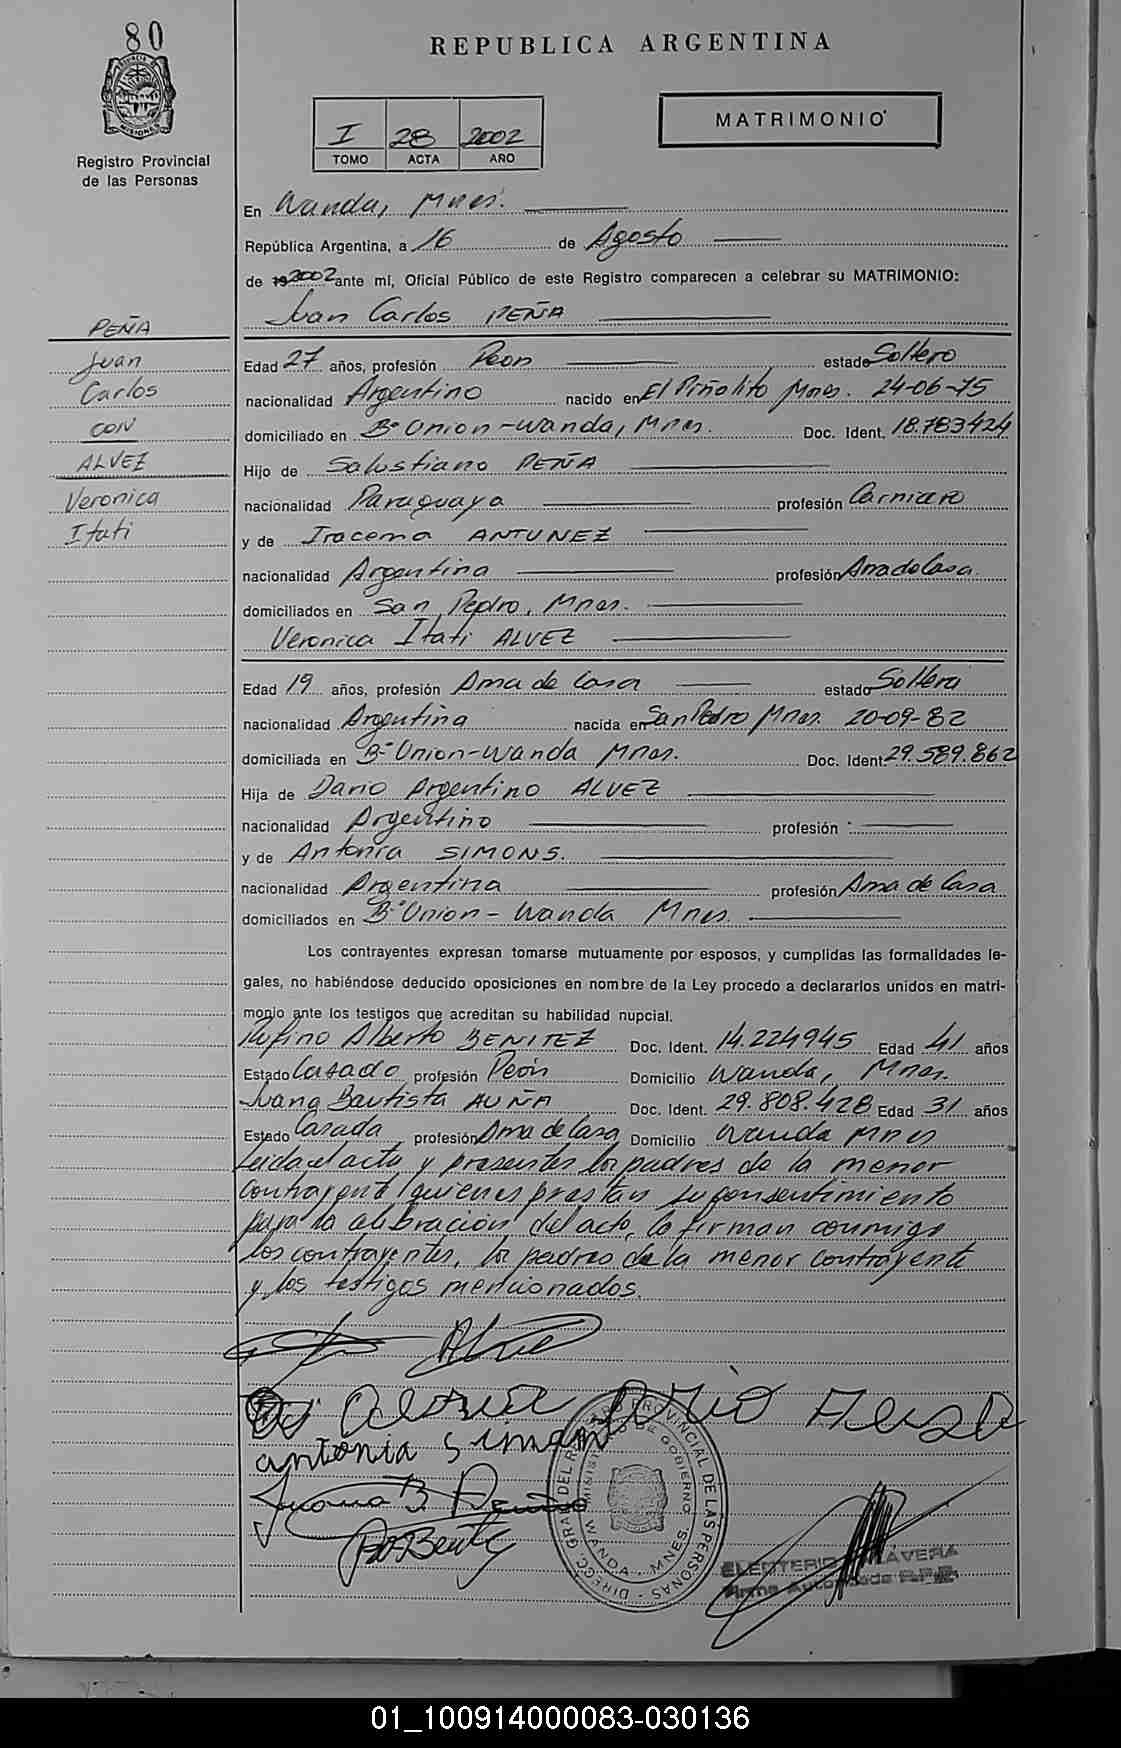 80
REPUBLICA ARGENTINA
MISIONES
Registro Provincial
de las Personas
I 28 2002
TOMO ACTA AÑO
MATRIMONIO
En Wanda, Mnes.
República Argentina, a 16 de Agosto
de 19 2002 ante mí, Oficial Público de este Registro comparecen a celebrar su MATRIMONIO:
Juan Carlos PEÑA
PEÑA
Juan
Carlos
CON
ALVEZ
Veronica
Itati
Edad 27 años, profesión Peon estado Soltero
nacionalidad Argentino nacido en El Piñalito Mnes. 24-06-75
domiciliado en Bº Union-Wanda, Mnes. Doc. Ident. 18.783424
Hijo de Salustiano PEÑA
nacionalidad Paraguaya profesión
y de Iracema ANTUNEZ
nacionalidad Argentina profesión Ama de Casa.
domiciliados en San Pedro, Mnes.
Veronica Itati ALVEZ
Edad 19 años, profesión Ama de Casa estado Soltera
nacionalidad Argentina nacida en San Pedro Mnes. 20-09-82
domiciliada en Bº Union-Wanda Mnes. Doc. Ident. 29.589.862
Hija de Dario Argentino ALVEZ
nacionalidad Argentino profesión
y de Antonia SIMONS.
nacionalidad Argentina profesión Ama de Casa
domiciliados en Bº Union - Wanda Mnes.
Los contrayentes expresan tomarse mutuamente por esposos, y cumplidas las formalidades le-
gales, no habiéndose deducido oposiciones en nombre de la Ley procedo a declararlos unidos en matri-
monio ante los testigos que acreditan su habilidad nupcial.
Rufino Alberto BENITEZ Doc. Ident. 14.224945 Edad 41 años
Estado Casado profesión Peón Domicilio Wanda, Mnes.
Juana Bautista Doc. Ident. 29.808.428 Edad 31 años
Estado Casada profesión Ama de Casa Domicilio Wanda Mnes
Leida el acta y presentes los padres de la menor
contrayente quienes prestan su consentimiento
para la celebración del acto, la firman conmigo
los contrayentes, los padres de la menor contrayente
y los testigos mencionados.
antonia
Juana B
DIRECC. GRAL. DEL REGISTRO PROVINCIAL DE LAS PERSONAS
MINISTERIO DE GOBIERNO
WANDA - MNES.
Firma Autorizada
01_100914000083-030136